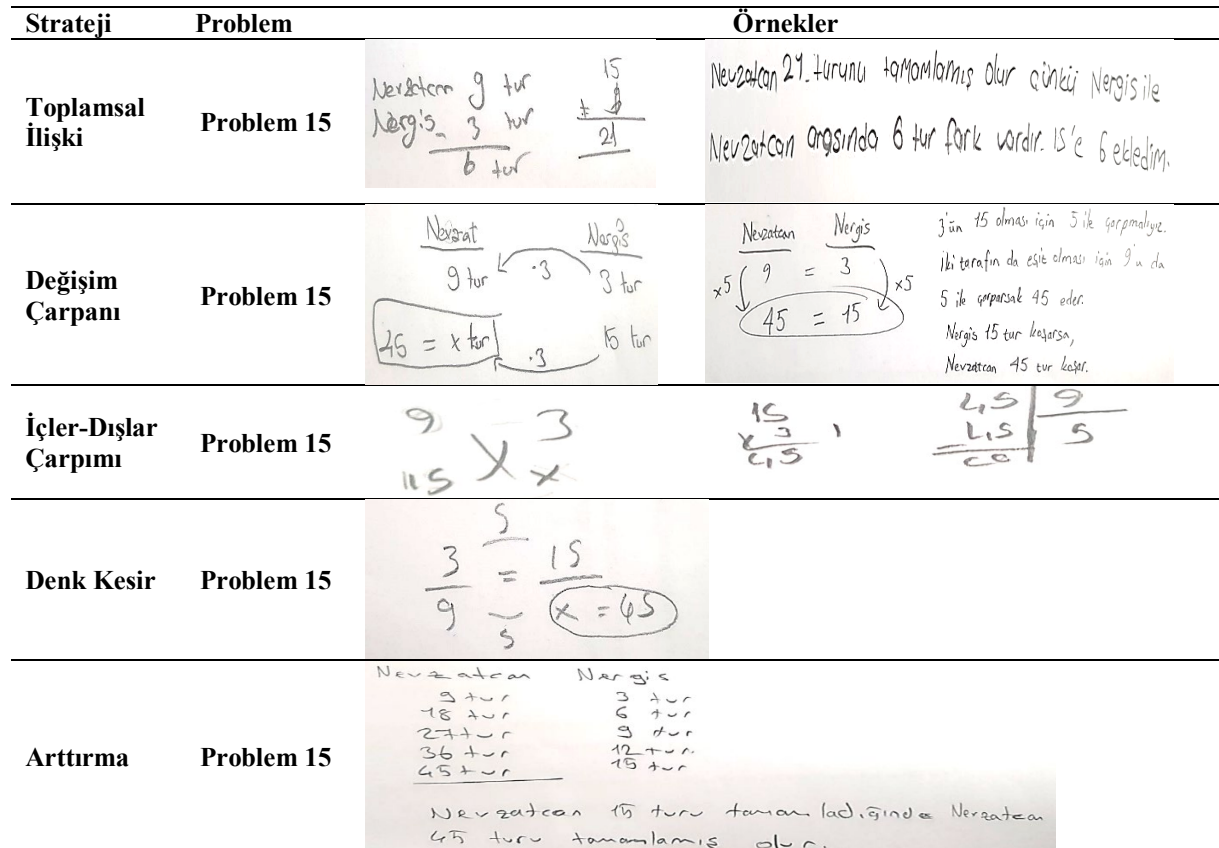 Strateji Problem Örnekler
Toplamsal İlişki Problem 15
Nevzatcan 9 tur
Nergis - 3 tur
6 tur
15
+
21
Nevzatcan 21. turunu tamamlamış olur çünkü Nergis ile
Nevzatcan arasında 6 tur fark vardır. 15'e 6 ekledim.
Değişim Çarpanı Problem 15
Nevzat Nergis
9 tur .3 3 tur
45 = x tur .3 15 tur
Nevzatcan Nergis
x5 9 = 3 x5
45 = 15
3'ün 15 olması için 5 ile çarpmalıyız.
İki tarafın da eşit olması için 9'u da
5 ile çarparsak 45 eder.
Nergis 15 tur koşarsa,
Nevzatcan 45 tur koşar.
İçler-Dışlar Çarpımı Problem 15
9 3
15 x
15
x 3
45
45 9
45 5
Denk Kesir Problem 15
5
3 = 15
9 x = 45
5
Arttırma Problem 15
Nevzatcan Nergis
9 tur 3 tur
18 tur 6 tur
27 tur 9 tur
36 tur 12 tur.
45 tur 15 tur
Nevzatcan 15 turu tamamladığında Nevzatcan
45 turu tamamlamış olur.